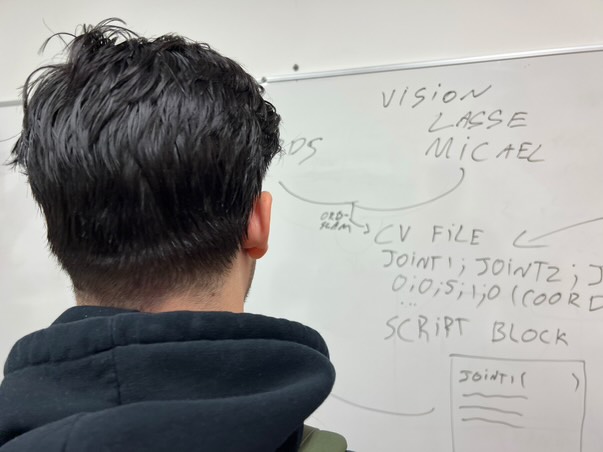 VISION
LASSE
MICAEL
DS
ORB-
SLAM
CV FILE
JOINT1; JOINT2; J
0;0;5;1;0 (COORD
...
SCRIPT BLOCK
JOINT1( )